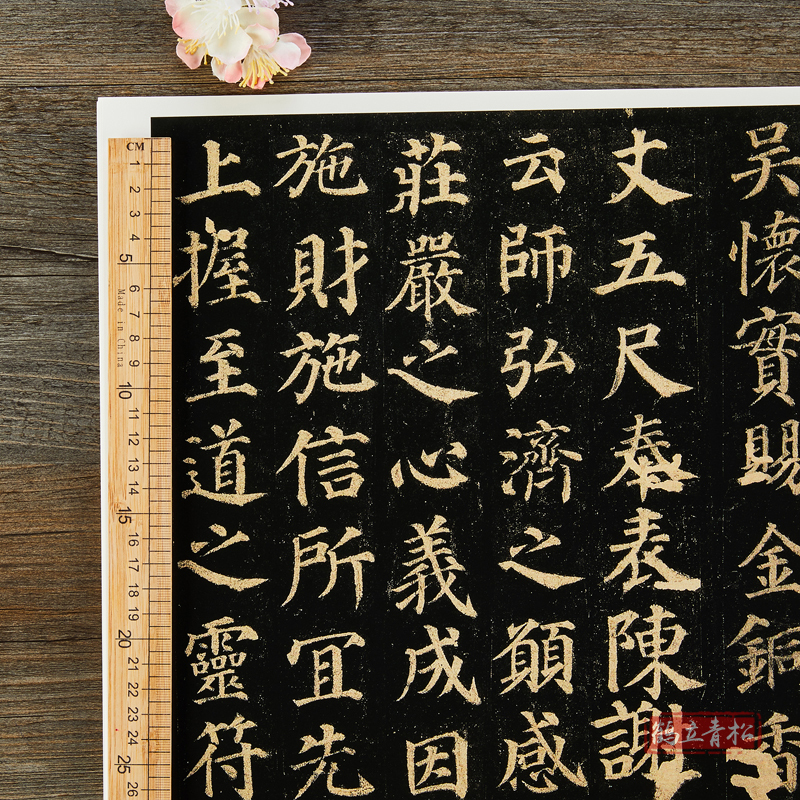 吴懷實賜金銅香
丈五尺奉表陳謝
云師弘濟之願感
莊嚴之心義成因
施財施信所宜先
上握至道之靈符
CM
1
2
3
4
5
6
7
8
9
10
11
12
13
14
15
16
17
18
19
20
21
22
23
24
25
26
Made in China
鹤立青松